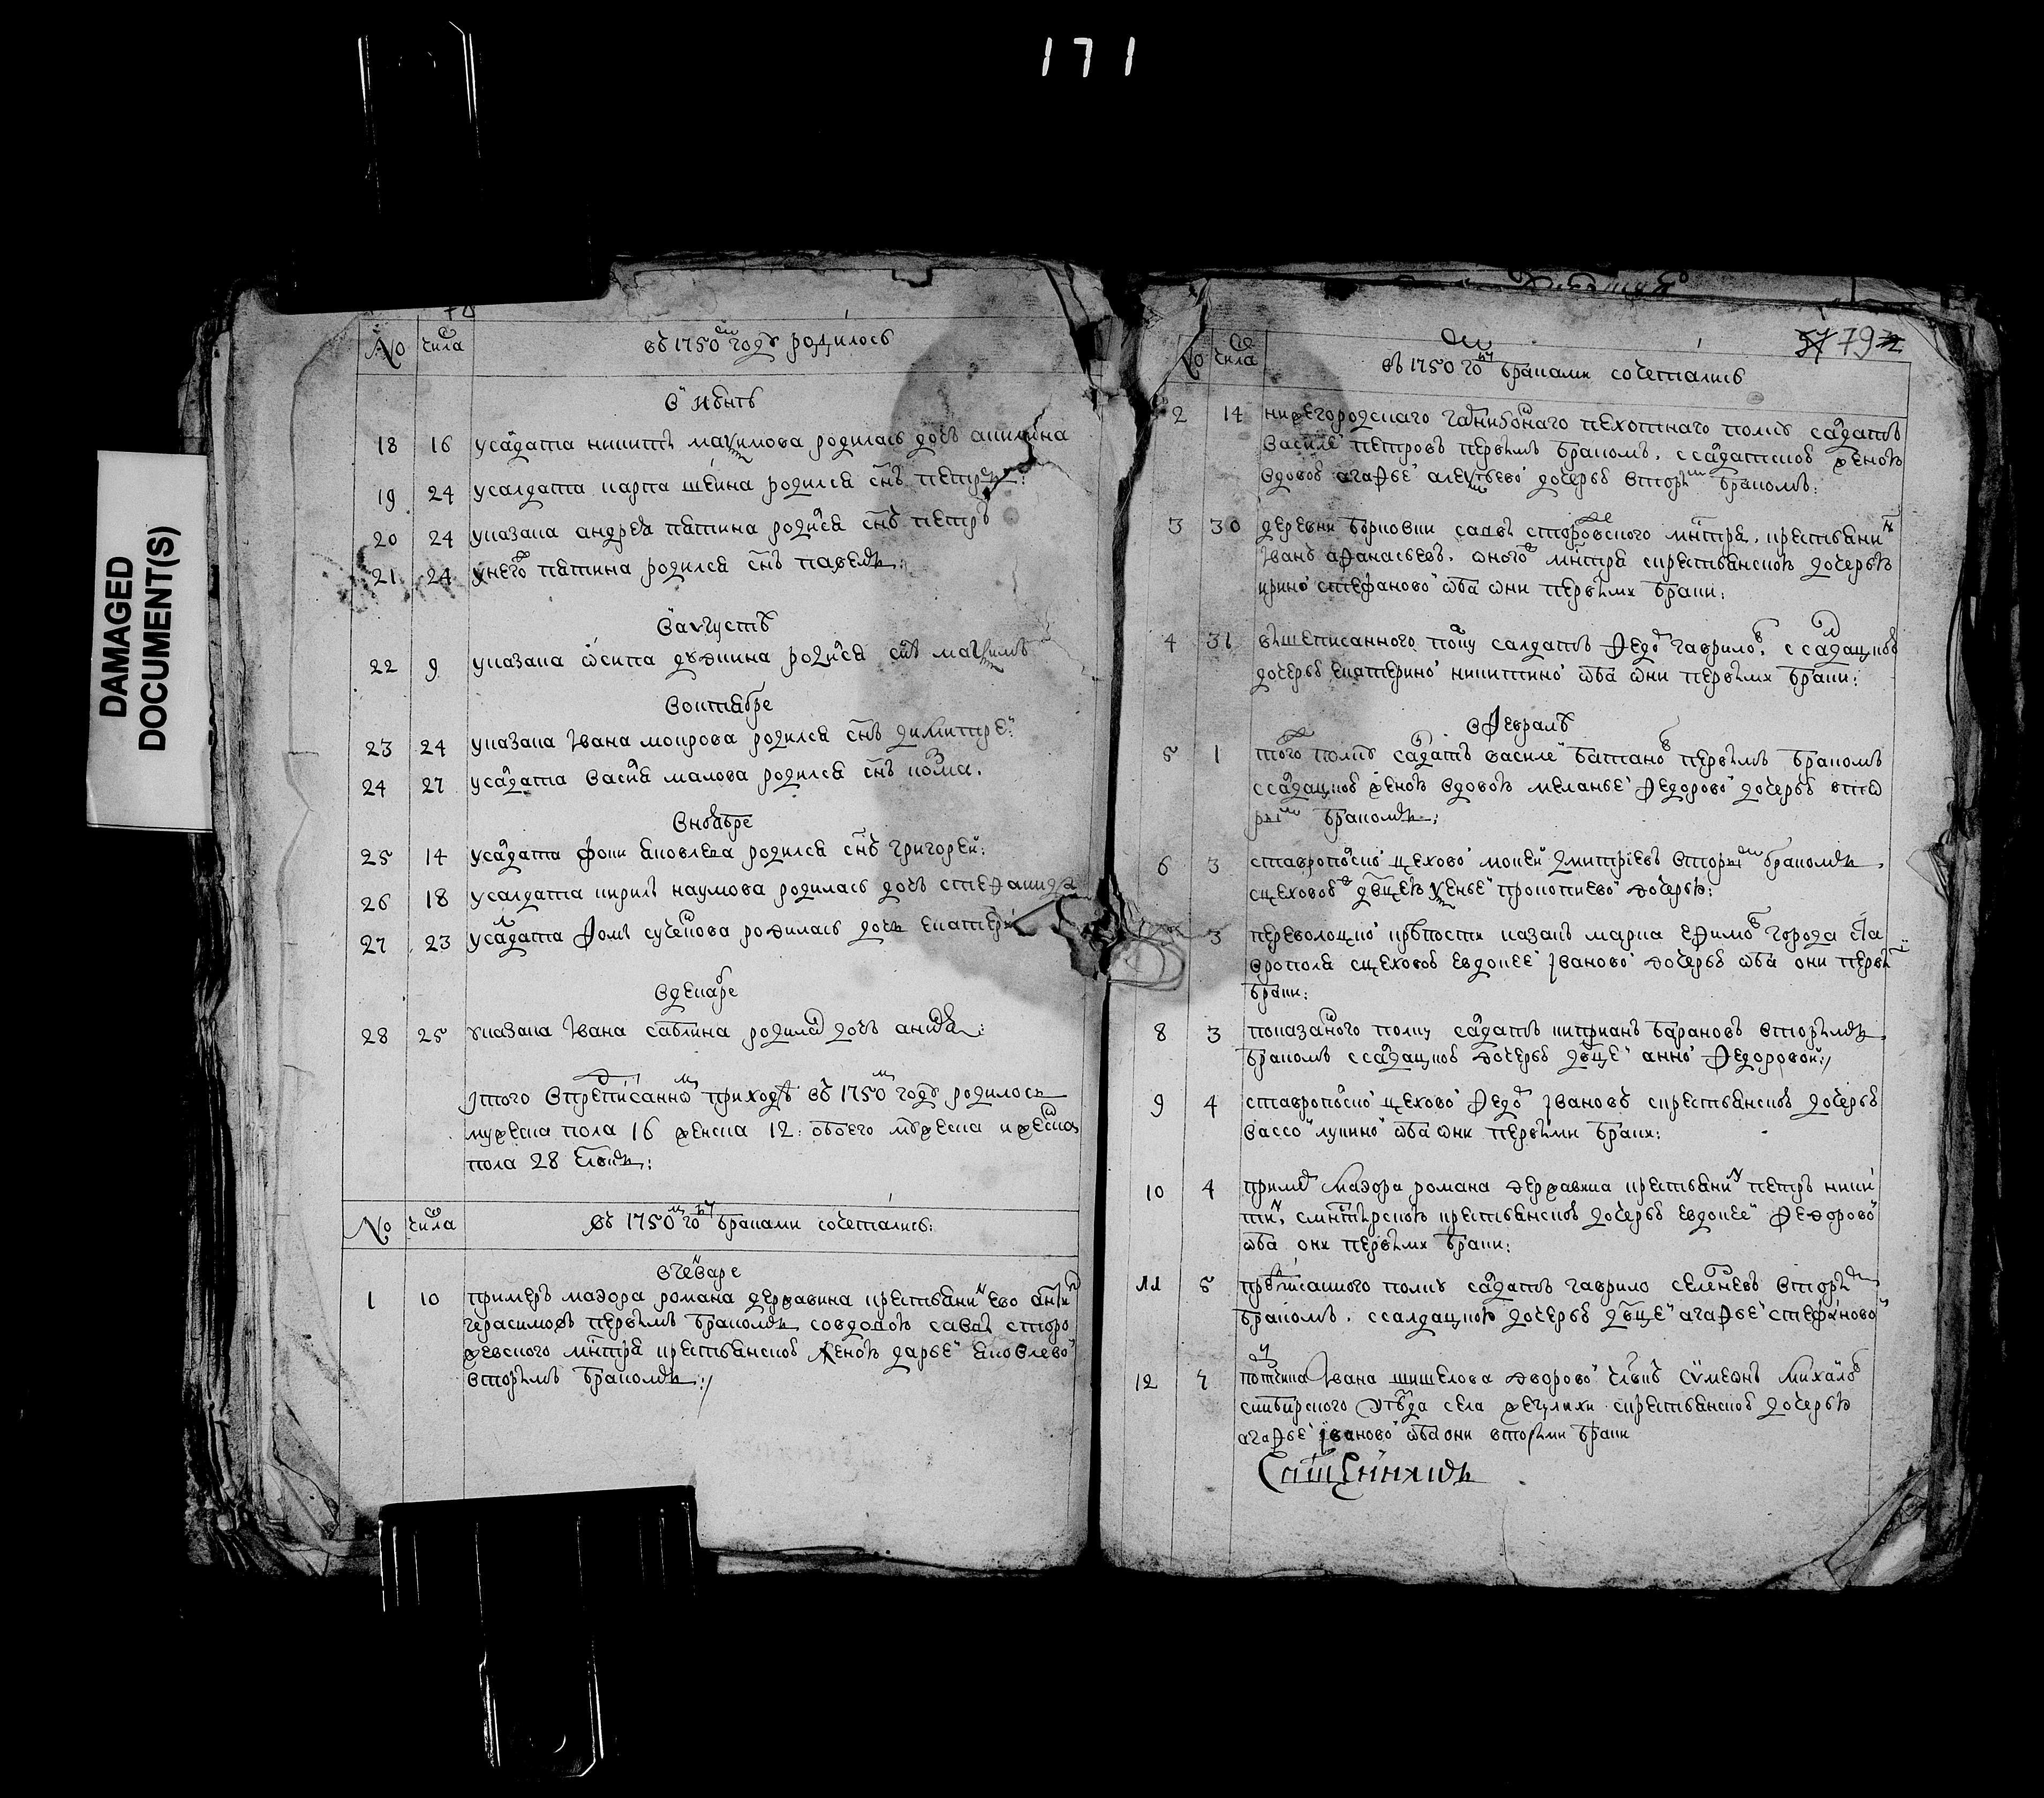 171
DAMAGED
DOCUMENT(S)
№ числа въ 1750м году родилось
в июнѣ
18 16 у салдата никиты маѯимова родилась дочь акилина
19 24 у салдата карпа шеина родился сн҃ъ петръ:
20 24 у казака андрея пятина родился сн҃ъ петръ
21 24 у него пятина родился сн҃ъ павелъ:
в аѵгустѣ
22 9 у казака ѡсипа дудкина родился сн҃ъ маѯимъ
в октябре
23 24 у казака Ивана мокрова родился сн҃ъ димитрей:
24 27 у салдата Василья малова родился сн҃ъ козма.
в ноябре
25 14 у салдата фоки яковлева родился сн҃ъ григорей:
26 18 у салдата кирилы наумова родилась дочь стефанида
27 23 у салдата Фомы родилась дочь екатери
в декабре
28 25 у казака Ивана саблина родилась дочь
итого в приходѣ въ 1750м году родилось
мужеска пола 16 женска 12: обоего мужеска и женска
пола 28 члвкъ:
№ числа Въ 1750м году браками сочетались:
в генваре
1 10 примеръ маэора романа державина крестьянинъ ево
герасимовъ первымъ бракомъ со вдовою савы сторо
жевского мнтря крестьянскою женою дарьей яковлевой
вторымъ бракомъ:
79
№ числа въ 1750 году браками сочетались
2 14 нижегородскаго пехотнаго полку салдатъ
Василей петровъ первымъ бракомъ. с салдатскою женою
вдовою агафьей дочерью вторымъ бракомъ:
3 30 деревни борковки савы сторожевского мнтря, крестьянинъ
Иванъ афанасьевъ. оного мнтря с крестьянскою дочерью
ириной стефановой ѡба ѡни первыми браки:
4 31 вышеписанного полку салдатъ Федоръ гавриловъ, с салдацкою
дочерью екатериной никитиной ѡба ѡни первыми браки:
в Февралѣ
5 1 того полку салдатъ василей первымъ бракомъ
с салдацкою женою вдовою меланьей Федоровой дочерью вто
рымъ бракомъ:
6 3 ставропольской цеховой мокей дмитріевъ вторымъ бракомъ
с цеховою двцею ѯеньей прокопиевой дочерью:
3 переволоцкой крѣпости казакъ марка ефимовъ города ста
врополя с цеховою евдокеей Ивановой дочерью ѡба они первыми
браки:
8 3 показанного полку салдатъ киприанъ барановъ вторымъ
бракомъ с салдацкою дочерью двцей анной Федоровой:
9 4 ставропольской цеховой Федоръ Ивановъ с крестьянскою дочерью
вассой лукиной ѡба ѡни первыми браки:
10 4 примеръ маэора романа державина крестьянинъ петръ ники
тинъ, с мнтырскою крестьянскою дочерью евдокеей Федоровой
ѡба они первыми браки:
11 5 полку салдатъ гаврило вторымъ
бракомъ. с салдацкою дочерью двцей агафьей стефановой
12 7 Ивана шишелова дворовой члвкъ сѵмеѡнъ михайловъ
синбирского уѣзда села с крестьянскою дочерью
агафьей Ивановой ѡба они вторыми браки